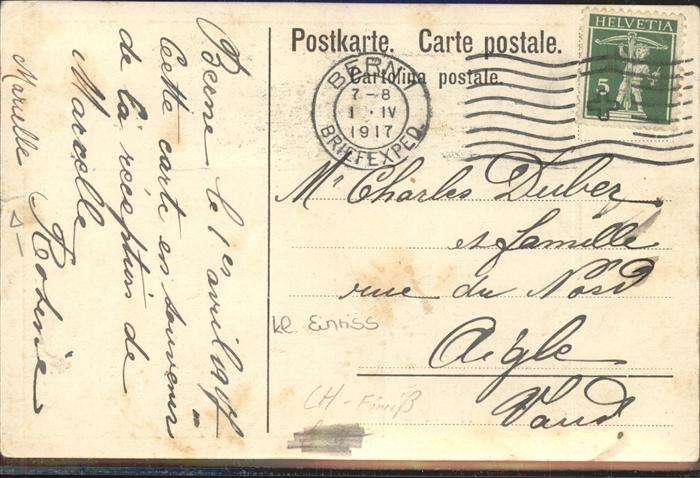 Postkarte. Carte postale.
Cartolina postale.
HELVETIA
5
BERN 1
7-8
1 · IV
1917
BRIEFEXPED.
Berne le 1er avril 1917
Cette carte en souvenir
de la réception de
Marcelle
Marcelle
Mr Charles Dubez
et famille
rue du Nord
Aigle
Vaud.
kl. Einriss
CH -